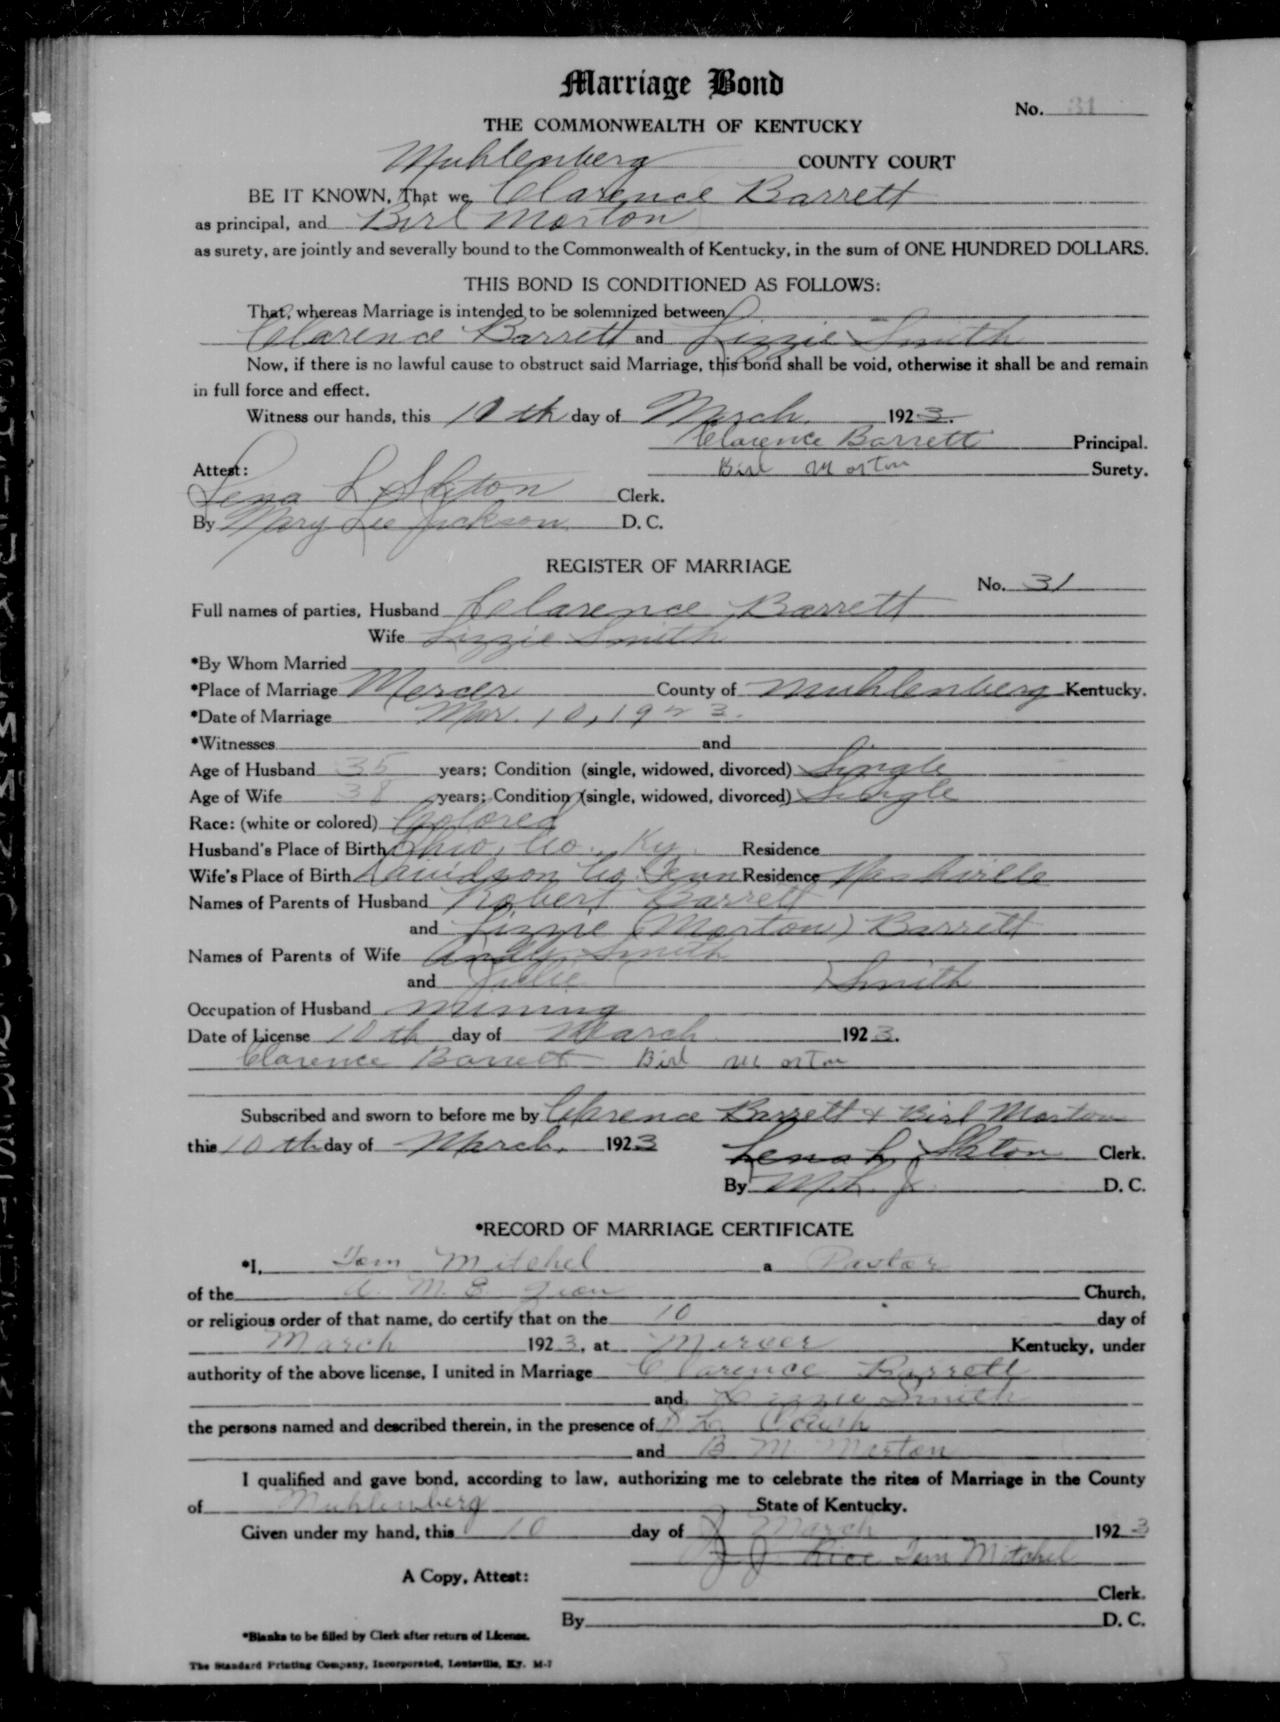 Marriage Bond
No. 31
THE COMMONWEALTH OF KENTUCKY
Muhlenberg COUNTY COURT
BE IT KNOWN, That we, Clarence Barrett
as principal, and Birl Morton
as surety, are jointly and severally bound to the Commonwealth of Kentucky, in the sum of ONE HUNDRED DOLLARS.
THIS BOND IS CONDITIONED AS FOLLOWS:
That, whereas Marriage is intended to be solemnized between
Clarence Barrett and Lizzie Smith
Now, if there is no lawful cause to obstruct said Marriage, this bond shall be void, otherwise it shall be and remain
in full force and effect.
Witness our hands, this 10th day of March. 1923.
Clarence Barrett Principal.
Attest: Birl Morton Surety.
Lena L. Skton Clerk.
By Mary Lee Jackson D. C.
REGISTER OF MARRIAGE
No. 31
Full names of parties, Husband Clarence Barrett
Wife Lizzie Smith
*By Whom Married
*Place of Marriage Mercer County of Muhlenberg Kentucky.
*Date of Marriage Mar. 10, 1923.
*Witnesses and
Age of Husband 35 years; Condition (single, widowed, divorced) Single
Age of Wife 38 years; Condition (single, widowed, divorced) Single
Race: (white or colored) Colored
Husband's Place of Birth Ohio, Co., Ky. Residence
Wife's Place of Birth Davidson Co, Tenn Residence Nashville
Names of Parents of Husband Robert Barrett
and Lizzie (Morton) Barrett
Names of Parents of Wife Andy Smith
and Julie ( ) Smith
Occupation of Husband Mining
Date of License 10th day of March 1923.
Clarence Barrett Birl Morton
Subscribed and sworn to before me by Clarence Barrett & Birl Morton
this 10th day of March. 1923 Lena L. Skton Clerk.
By M. L. J. D. C.
*RECORD OF MARRIAGE CERTIFICATE
*I, Tom Mitchel a Pastor
of the A. M. E. Zion Church,
or religious order of that name, do certify that on the 10 day of
March 1923, at Mercer Kentucky, under
authority of the above license, I united in Marriage Clarence Barrett
and Lizzie Smith
the persons named and described therein, in the presence of
and B. M. Morton
I qualified and gave bond, according to law, authorizing me to celebrate the rites of Marriage in the County
of Muhlenberg State of Kentucky.
Given under my hand, this 10 day of March 1923
J. J. Rice Tom Mitchel
A Copy, Attest:
Clerk.
By D. C.
*Blanks to be filled by Clerk after return of License.
The Standard Printing Company, Incorporated, Louisville, Ky. M-7